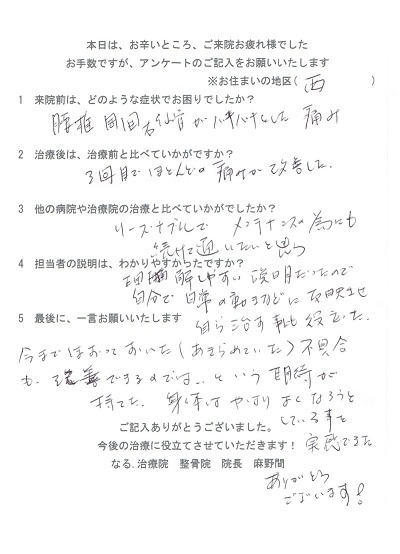 本日は、お辛いところ、ご来院お疲れ様でした
お手数ですが、アンケートのご記入をお願いいたします
※お住まいの地区( 西 )
1 来院前は、どのような症状でお困りでしたか?
腰椎 回り 仙骨がバキバキとした 痛み
2 治療後は、治療前と比べていかがですか?
3回目でほとんどの痛みが改善した.
3 他の病院や治療院の治療と比べていかがでしたか?
リーズナブルで メンテナンスの為にも
続けて通いたいと思う
4 担当者の説明は、わかりやすかったですか?
理解しやすい説明だったので
自分で日常の動きなどに反映させ
5 最後に、一言お願いいたします
自ら治す事も役立った.
今までほおっておいた(あきらめていた)不具合
も、改善できるのでは..という期待が
持てた. 身体はやはりよくなろうと
している事を
ご記入ありがとうございました。
今後の治療に役立てさせていただきます!
実感できた
なる.治療院 整骨院 院長 麻野間
ありがとう
ございます!